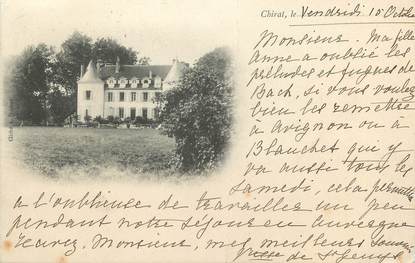 Chirat, le Vendredi 10 Octobre
Monsieur. Ma fille
Anne a oublié les
préludes et fugues de
Bach, si vous voulez
bien les remettre
à Avignon ou à
Blanchet qui y
va aussi tous les
Samedi, cela permettra
à l'oublieuse de travailler un peu
pendant notre séjour en Auvergne
Monsieur, mes meilleurs
de